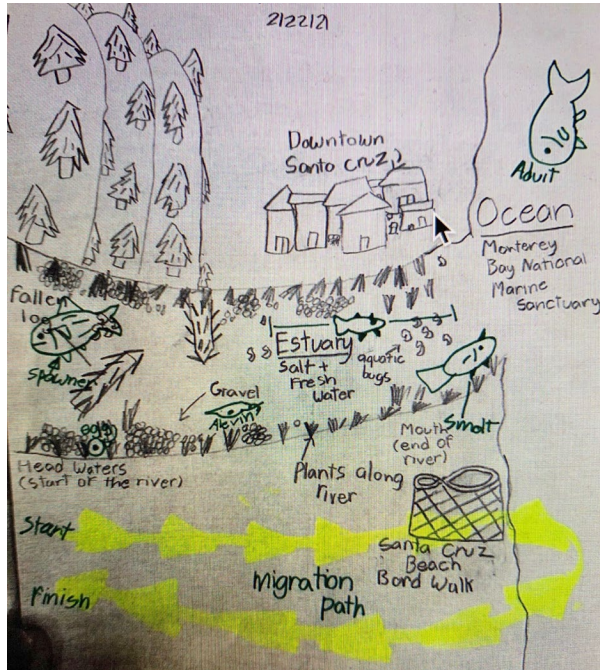 2/22/21
Downtown
Santa Cruz
Aduit
Ocean
Monterey
Bay National
Marine
Sanctuary
fallen
log
Spawner
Estuary
Salt +
Fresh
Water
aquatic
bugs
Gravel
Alevin
Smolt
egg
Mouth
(end of
river)
Head Waters
(start of the river)
Plants along
river
Start
Santa Cruz
Beach
Bord Walk
Migration
path
Finish